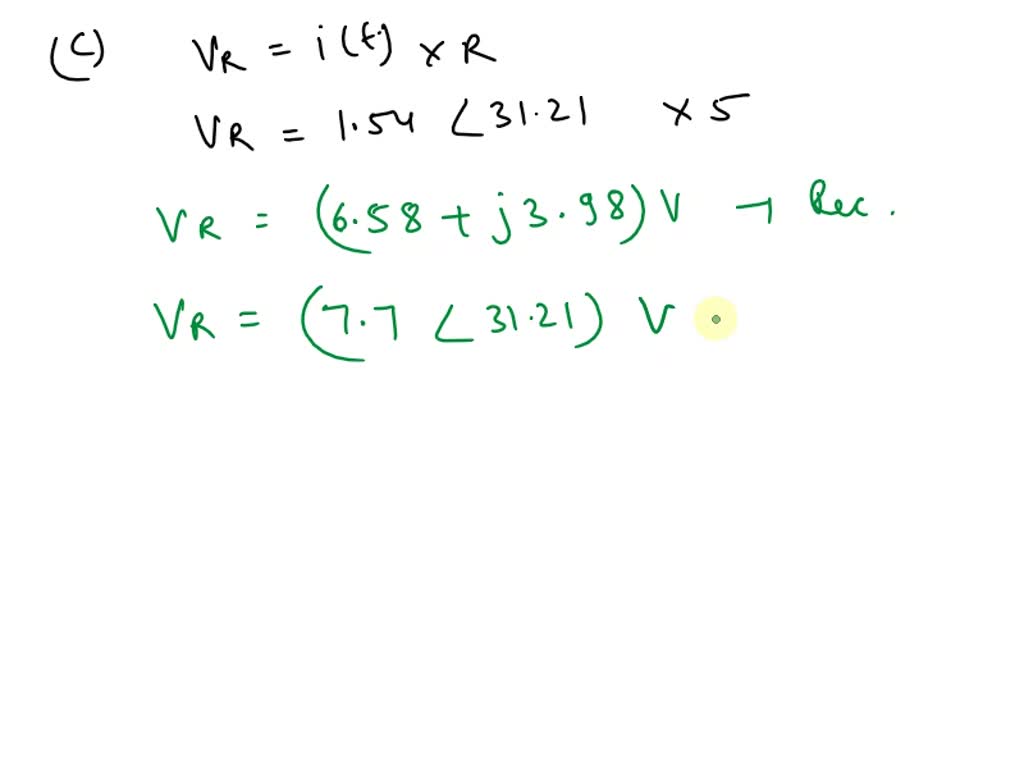 (C) VR = i(t) × R
VR = 1.54 ∠31.21 × 5
VR = (6.58 + j3.98) V → Rec.
VR = (7.7 ∠31.21) V